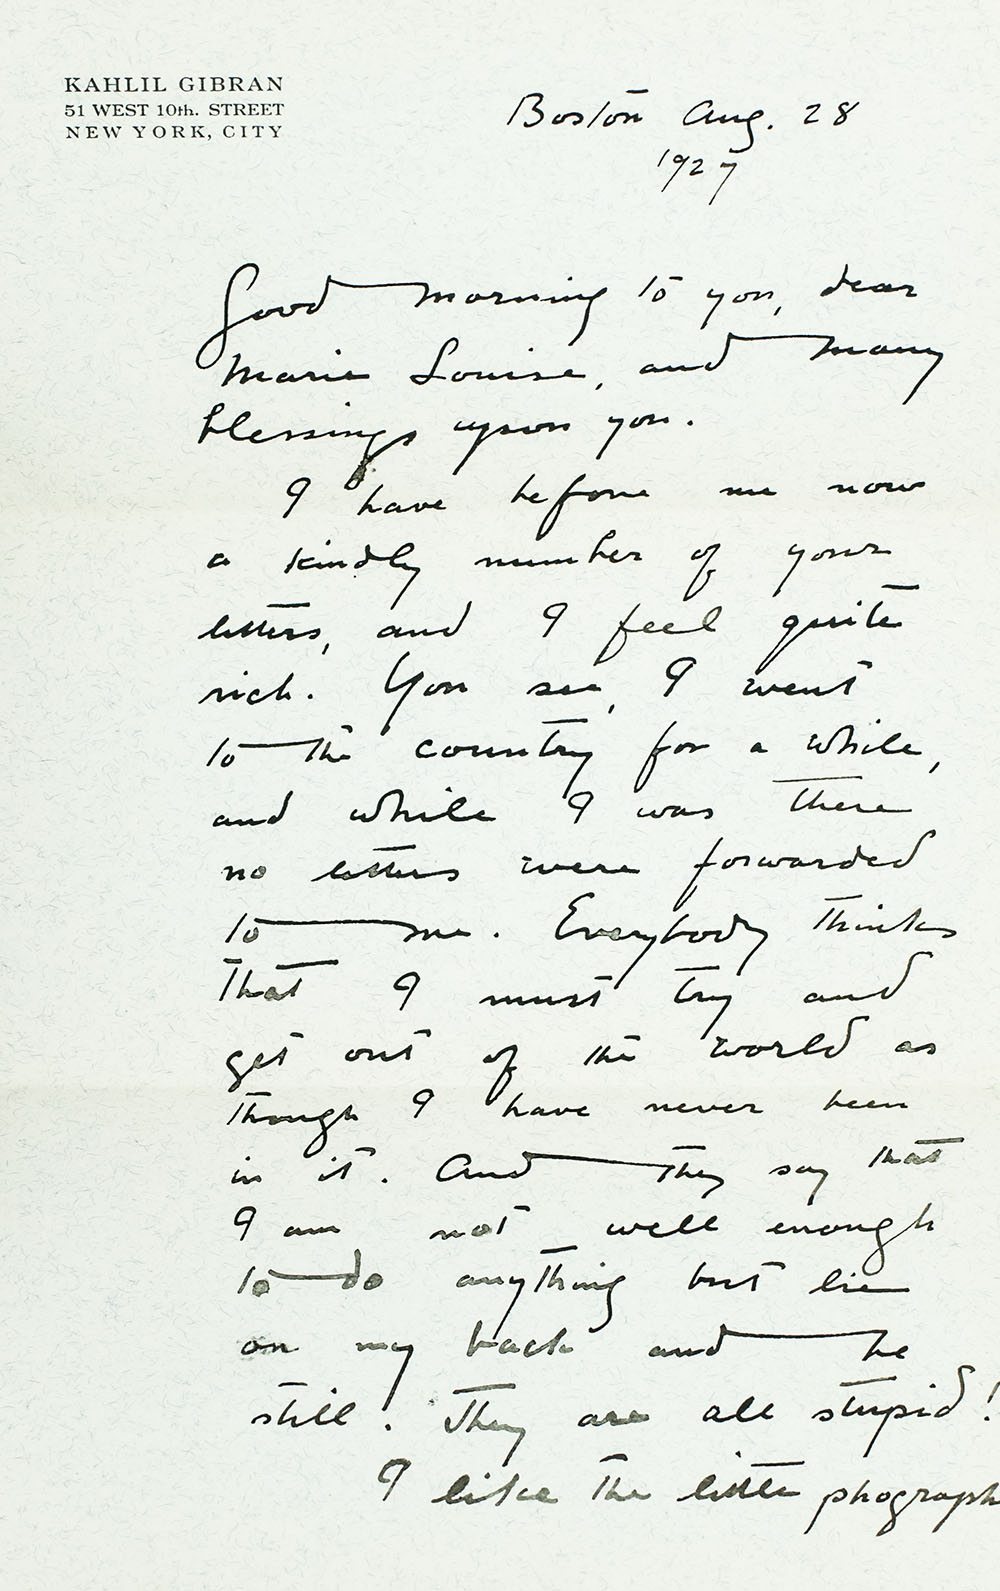 KAHLIL GIBRAN
51 WEST 10th. STREET
NEW YORK, CITY
Boston Aug. 28
1927
Good morning to you, dear
Marie Louise, and many
blessings upon you.
I have before me now
a kindly number of your
letters, and I feel quite
rich. You see, I went
to the country for a while,
and while I was there
no letters were forwarded
to me. Everybody thinks
that I must try and
get out of the world as
though I have never been
in it. And they say that
I am not well enough
to do anything but lie
on my back and be
still. They are all stupid!
I like the little phograph